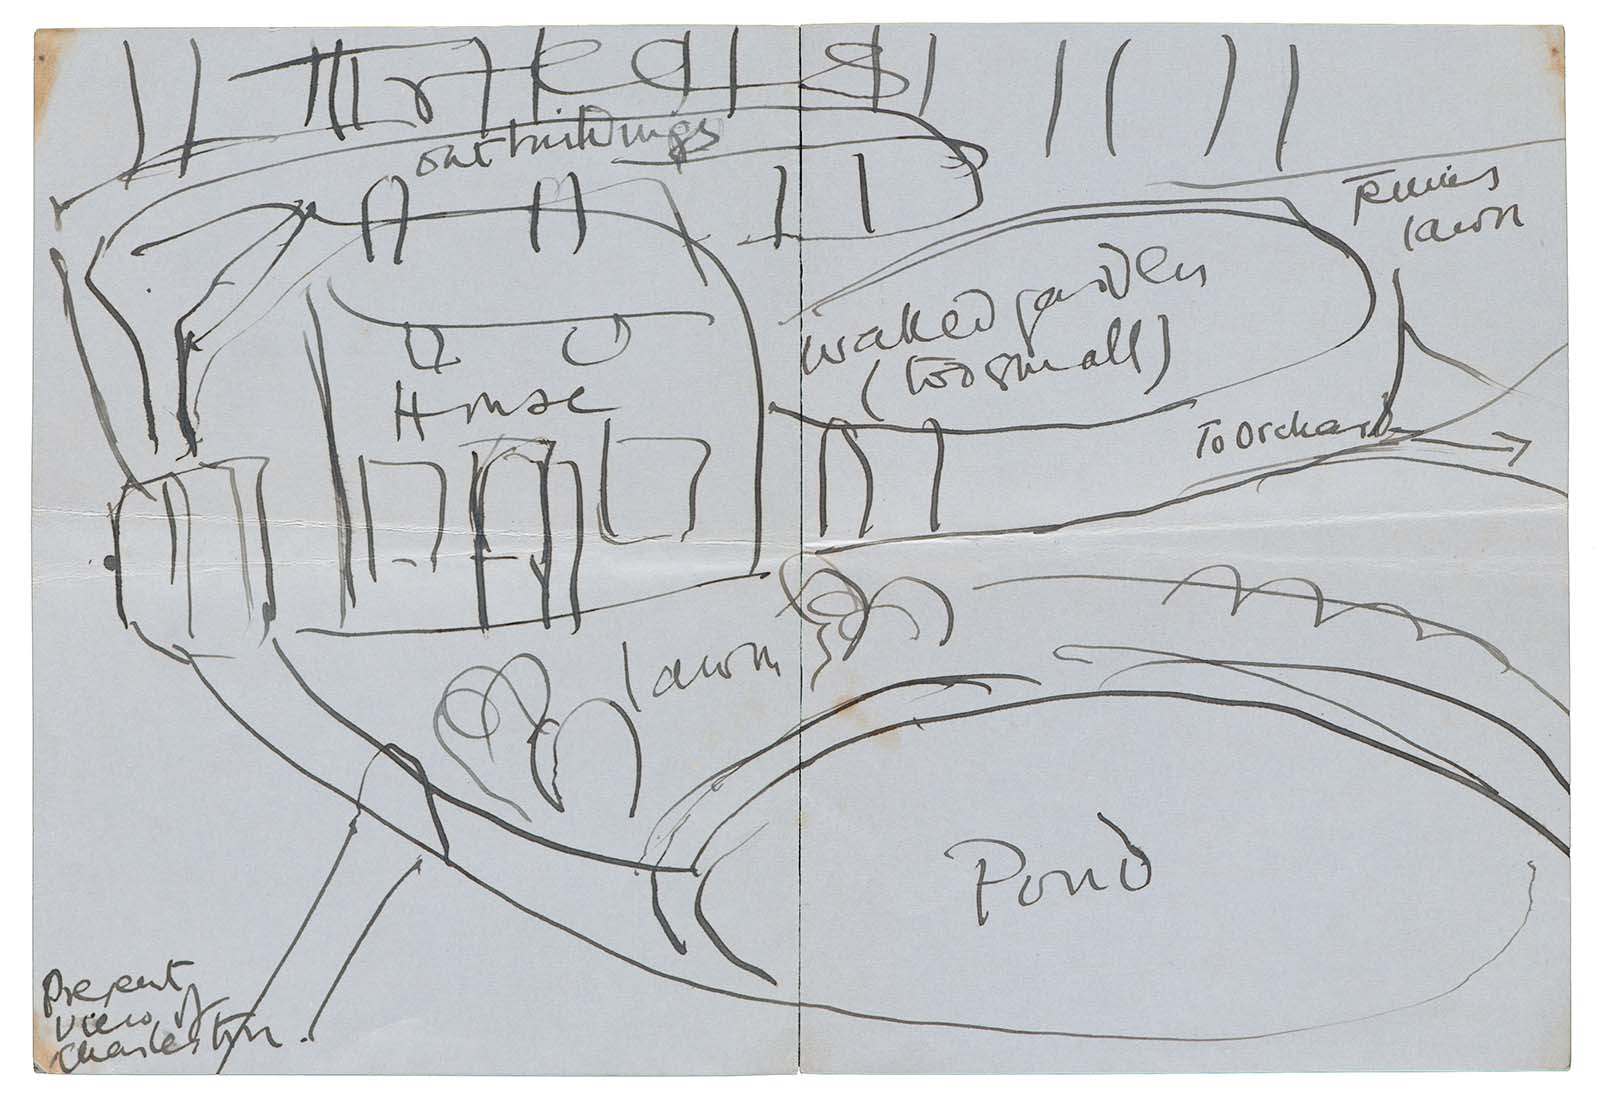 outbuildings
Tennis
lawn
walled garden
(too small)
House
To Orchard
lawn
Pond
Present
View of
Charleston.